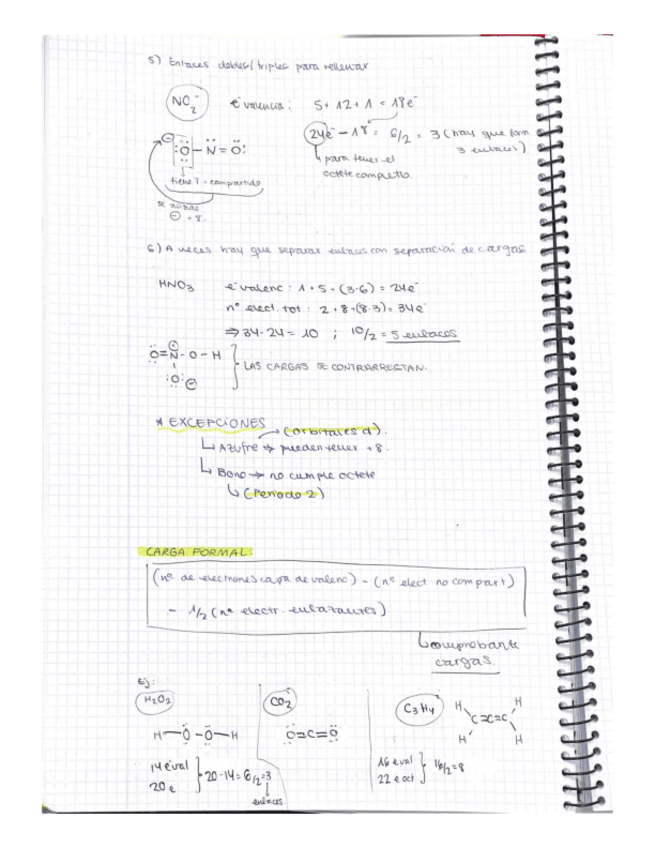 5) Enlaces dobles/triples para rellenar
NO₂⁻ e⁻ valencia: 5 + 12 + 1 = 18e⁻
24e⁻ - 18 = 6/2 = 3 (hay que form
3 enlaces)
para tener el
octete completo.
⊖ :Ö - N̈ = Ö:
tiene 7 + compartido
se añade
⊖ → 8.
6) A veces hay que separar enlaces con separación de cargas
HNO₃ e⁻ valenc: 1 + 5 + (3·6) = 24e⁻
nº elect. tot: 2 + 8 + (8·3) = 34e⁻
⇒ 34 - 24 = 10 ; 10/2 = 5 enlaces
⊕
Ö = N - O - H
:O: ⊖
LAS CARGAS SE CONTRARRESTAN.
* EXCEPCIONES
(orbitales d)
↳ Azufre → pueden tener +8.
↳ Boro → no cumple octete
↳ (Periodo 2)
CARGA FORMAL:
(nº de electrones capa de valenc) - (nº elect no compart)
- 1/2 (nº electr. enlazantes)
↳ comprobante
cargas.
Ej:
H₂O₂ CO₂ C₃H₄
H - Ö - Ö - H
Ö = C = Ö
H H
C = C = C
H H
14 e⁻ val
20 e
20 - 14 = 6/2 = 3
enlaces
16 e val
22 e oct
16/2 = 8